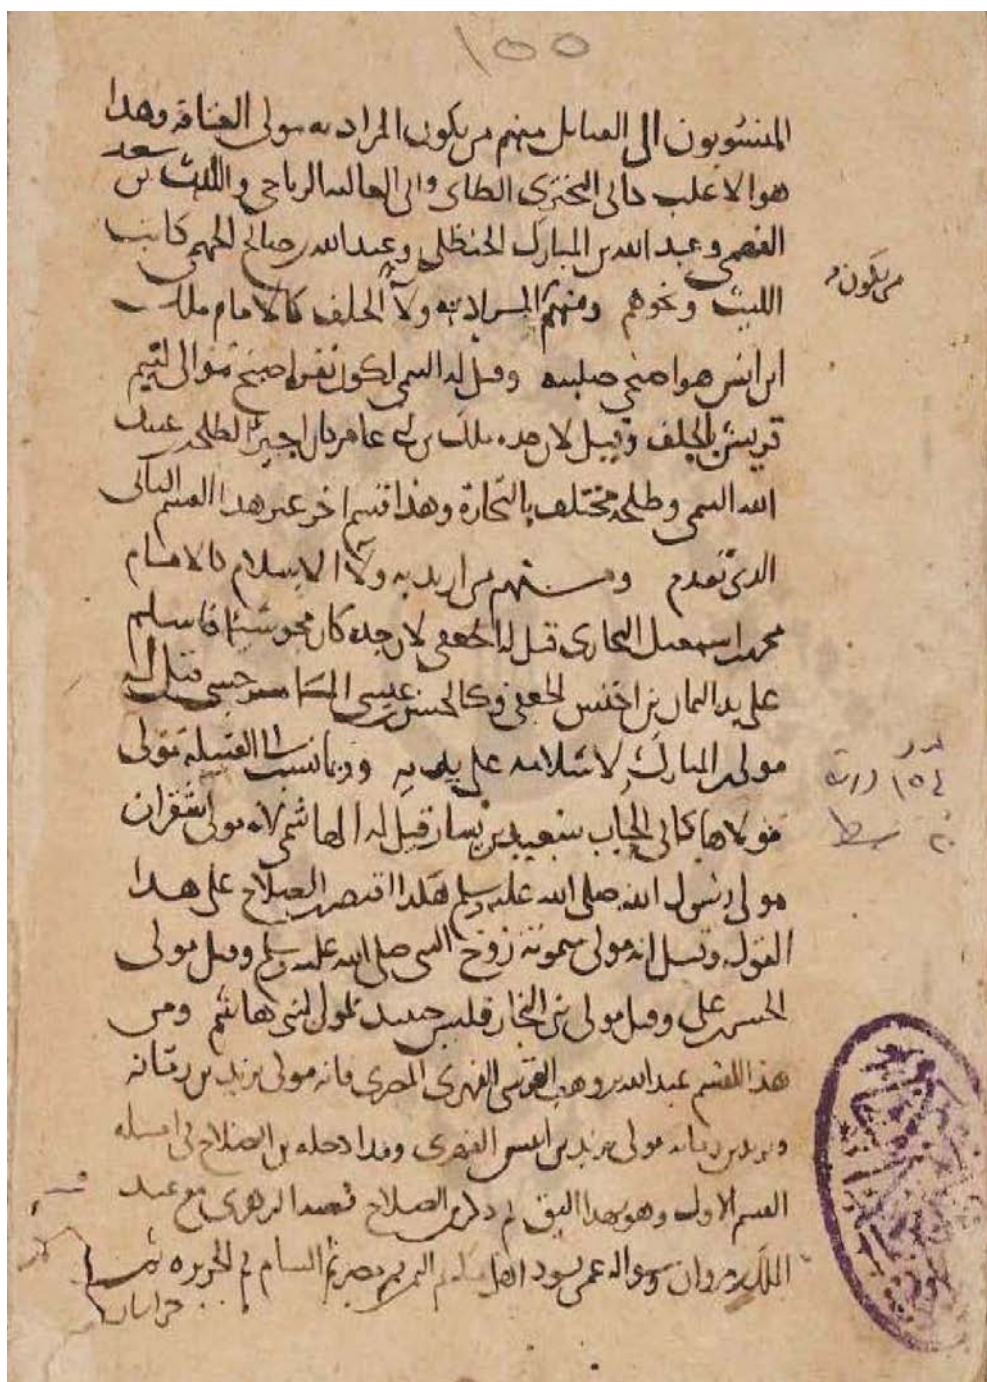 ١٥٥
المنسوبون الى القبائل منهم من يكون المراد به مولى العتاقة وهذا
هو الاغلب كابى البخترى الطاى وابى العاليه الرياحى والليث بن سعد
الفهمى وعبد الله بن المبارك الحنظلى وعبد الله بن صالح الجهنى كاتب
الليث ونحوهم ومنهم المراد به ولآ الحلف كالامام ملك
من يكون
ابن انس هو اصبحى صلبيه وقيل له التيمى لكون نفره اصبح موالى لتيم
قريش بالحلف وقيل لان جده ملك بن ابى عامر كان اجيرا لطلحه بن عبيد
الله التيمى وطلحه مختلف بالتجارة وهذا قسم اخر غير هذا القسم الثانى
الذى تقدم ومنهم من اريد به ولآ الاسلام كالامام
محمد بن اسمعيل البخارى قيل له الجعفى لان جده كان مجوسيا فاسلم
على يد اليمان بن اخنس الجعفى وكالحسن بن عيسى قيل له
مولى ابن المبارك لاسلامه على يديه وربما نسب الى القبيلة مولى
مولاها كابى الحباب سعيد بن يسار قيل له الهاشمى لانه مولى شقران
مولى رسول الله صلى الله عليه وسلم هكذا اقتصر ابن الصلاح على هذا
القول وقيل انه مولى ميمونة زوج النبى صلى الله عليه وسلم وقيل مولى
الحسن بن على وقيل مولى بنى النجار فليس حينئذ بمولى لبنى هاشم ومن
هذا القسم عبد الله بن وهب القرشى الفهرى المصرى فانه مولى يزيد بن رمانه
ويزيد بن رمانه مولى يزيد بن انيس الفهرى وقد ادخله بن الصلاح فى امثله
القسم الاول وهو بهذا اليق ثم ذكر بن الصلاح قصة الزهرى مع عبد
الملك بن مروان وسواله عمن يسود اهل مكه ثم اليمن ثم مصر ثم الشام ثم الجزيره ثم
خراسان